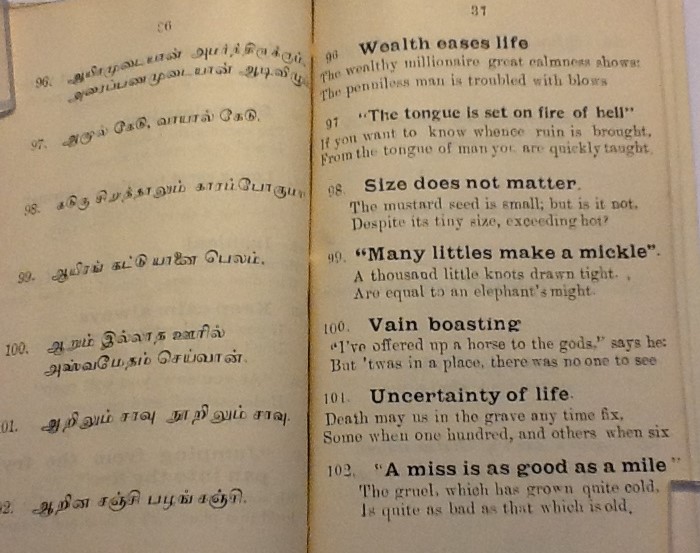 36
96. ஆயிரமுடையான் அமர்ந்திருக்கும்,
அரைப்பணமுடையான் ஆடி
97. அமுல் கேடு, வாயால் கேடு.
98. கடுகு சிறுத்தாலும்
99. ஆயிரங் கட்டு யானை பெலம்.
100. ஆறும் இல்லாத ஊரில்
அஸ்வமேதம் செய்வான்.
01. ஆறிலும் சாவு நூறிலும் சாவு.
02. ஆறின கஞ்சி பழங் கஞ்சி.
37
96 Wealth eases life
The wealthy millionaire great calmness shows:
The penniless man is troubled with blows
97 "The tongue is set on fire of hell"
If you want to know whence ruin is brought,
From the tongue of man you are quickly taught.
98. Size does not matter.
The mustard seed is small; but is it not,
Despite its tiny size, exceeding hot?
99. "Many littles make a mickle".
A thousand little knots drawn tight.
Are equal to an elephant's might.
100. Vain boasting
"I've offered up a horse to the gods," says he:
But 'twas in a place, there was no one to see
101. Uncertainty of life.
Death may us in the grave any time fix,
Some when one hundred, and others when six
102. "A miss is as good as a mile"
The gruel, which has grown quite cold,
Is quite as bad as that which is old.